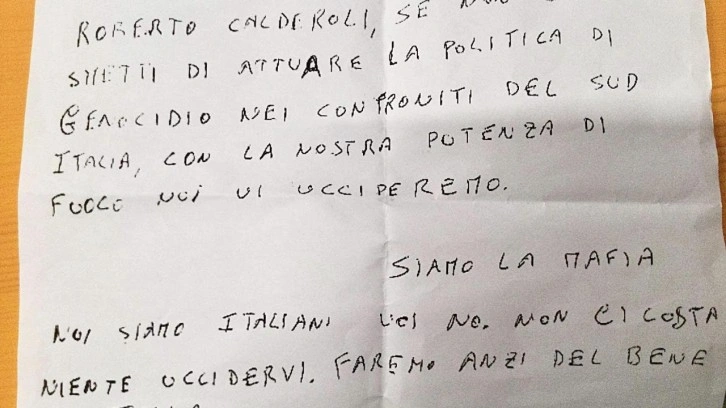 ROBERTO CALDEROLI, SE NON
SMETTI DI ATTUARE LA POLITICA DI
GENOCIDIO NEI CONFRONITI DEL SUD
ITALIA, CON LA NOSTRA POTENZA DI
FUOCO NOI VI UCCIDEREMO.
SIAMO LA MAFIA
NOI SIAMO ITALIANI VOI NO. NON CI COSTA
NIENTE UCCIDERVI. FAREMO ANZI DEL BENE